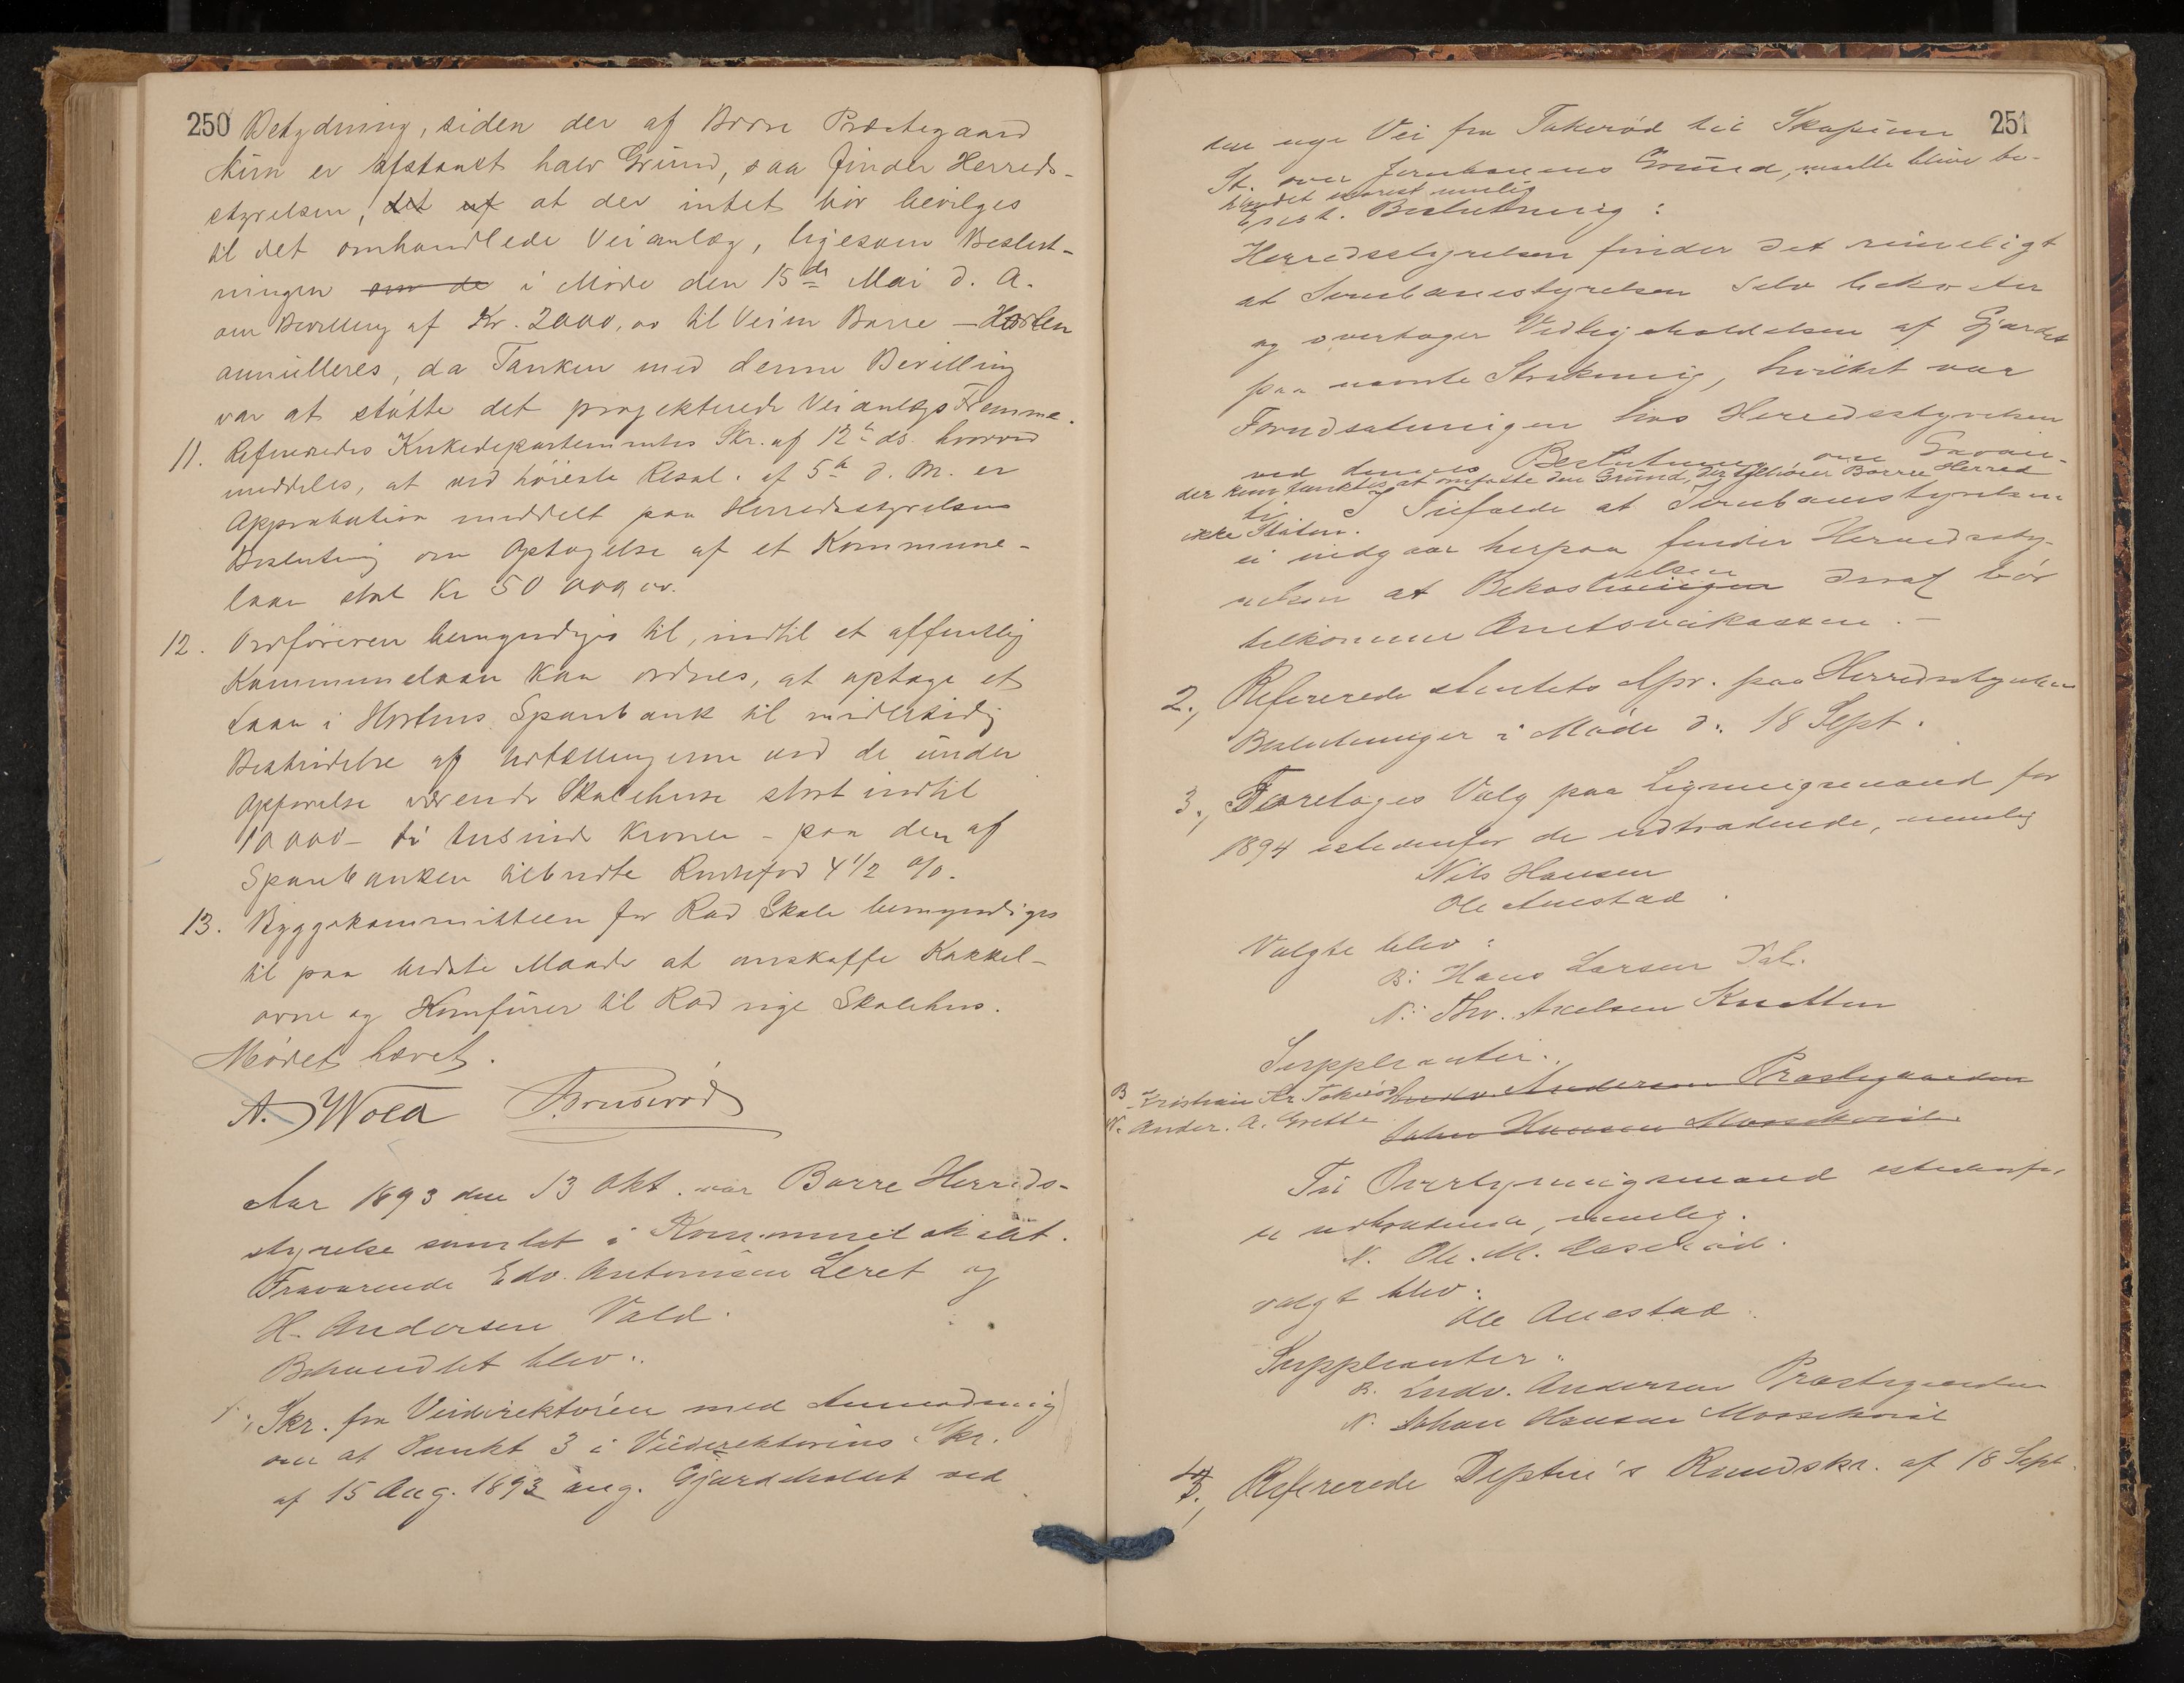 250
Betydning, siden der af Borre Præstegaard
kun er afstaaet halv Grund, saa finder Herreds-
styrelsen, det af at der intet bör bevilges
til det omhandlede Veianlæg, ligesom Beslut-
ningen om de i Möde den 15de Mai d. A.
om Bevilling af Kr. 2000,00 til Veien Borre - Horten
annulleres, da Tanken med denne Bevilling
var at stötte det projekterede Veianlægs Fremme.
11. Refereredes Kirkedepartementets Skr. af 12te ds. hvorved
meddeles, at ved höieste Resol. af 5te d. M. er
Approbation meddelt paa Herredsstyrelsens
Beslutning om Optagelse af et Kommune-
laan stort Kr 50 000,00.
12. Ordföreren bemyndiges til, indtil et offentlig
Kommunelaan kan ordnes, at optage et
Laan i Hortens Sparebank til midlertidig
Bestridelse af Udtællingerne ved de under
Opförelse værende Skolehuse stort indtil
10000 - ti tusinde Kroner - paa den af
Sparebanken tilbudte Rentefod 4 1/2 %.
13. Byggekommitteen for Rød Skole bemyndiges
til paa bedste Maade at anskaffe Kakkel-
ovne og Komfurer til Rød nye Skolehus.
Mödet hævet.
A. Wold Bruserød
Aar 1893 den 13 Okt. var Borre Herreds-
styrelse samlet i Kommunelokalet.
Fraværende Edv. Antonisen Leret og
H. Andersen Vold.
Behandlet blev:
1., Skr. fra Veidirektören med Anmodning
om at Punkt 3 i Veidirektörens Skr.
af 15 Aug. 1893 ang. Gjærdeholdet ved
251
den nye Vei fra Takeröd til Skopum
St. over Jernbanens Grund, maatte blive be-
handlet snarest mulig
Beslutning:
Herredsstyrelsen finder det rimeligt
at Jernbanestyrelsen selv bekoster
og overtager Vedligeholdelsen af Gjærdet
paa nævnte Strækning, hvilket var
Forudsætningen hos Herredsstyrelsen
ved dennes Beslutning om Garan-
der kun tænktes at omfatte den Grund, der tilhörer Borre Herred
ti I Tilfælde at Jernbanestyrelsen
ikke Staten.
ei indgaar herpaa finder Herredssty-
relsen at Bekostningen elsen deraf bör
tilkomme Amtsveikassen. -
2., Refererede Amtets Apr. paa Herredsstyrelsens
Beslutninger i Möde d: 18 Sept.
3., Foretoges Valg paa Ligningsmænd for
1894 istedenfor de udtrædende, nemlig
Nils Hansen
Ole Auestad.
Valgte blev:
B: Hans Larsen Dal.
N: Thv. Axelsen Knatten
Suppleanter:
B. Kristian Kr. Takeröd Ludv. Andersen Præstegaarden
N. Ander. A. Grette Johan Hansen
Til Overligningsmænd istedenfor
de udtrædende, nemlig.
N. Ole. M.
valgt blev:
Ole Auestad.
Suppleanter:
B. Ludv. Andersen Præstegaarden
N. Johan Hansen
4., Refererede Deptm's Rundskr. af 18 Sept.